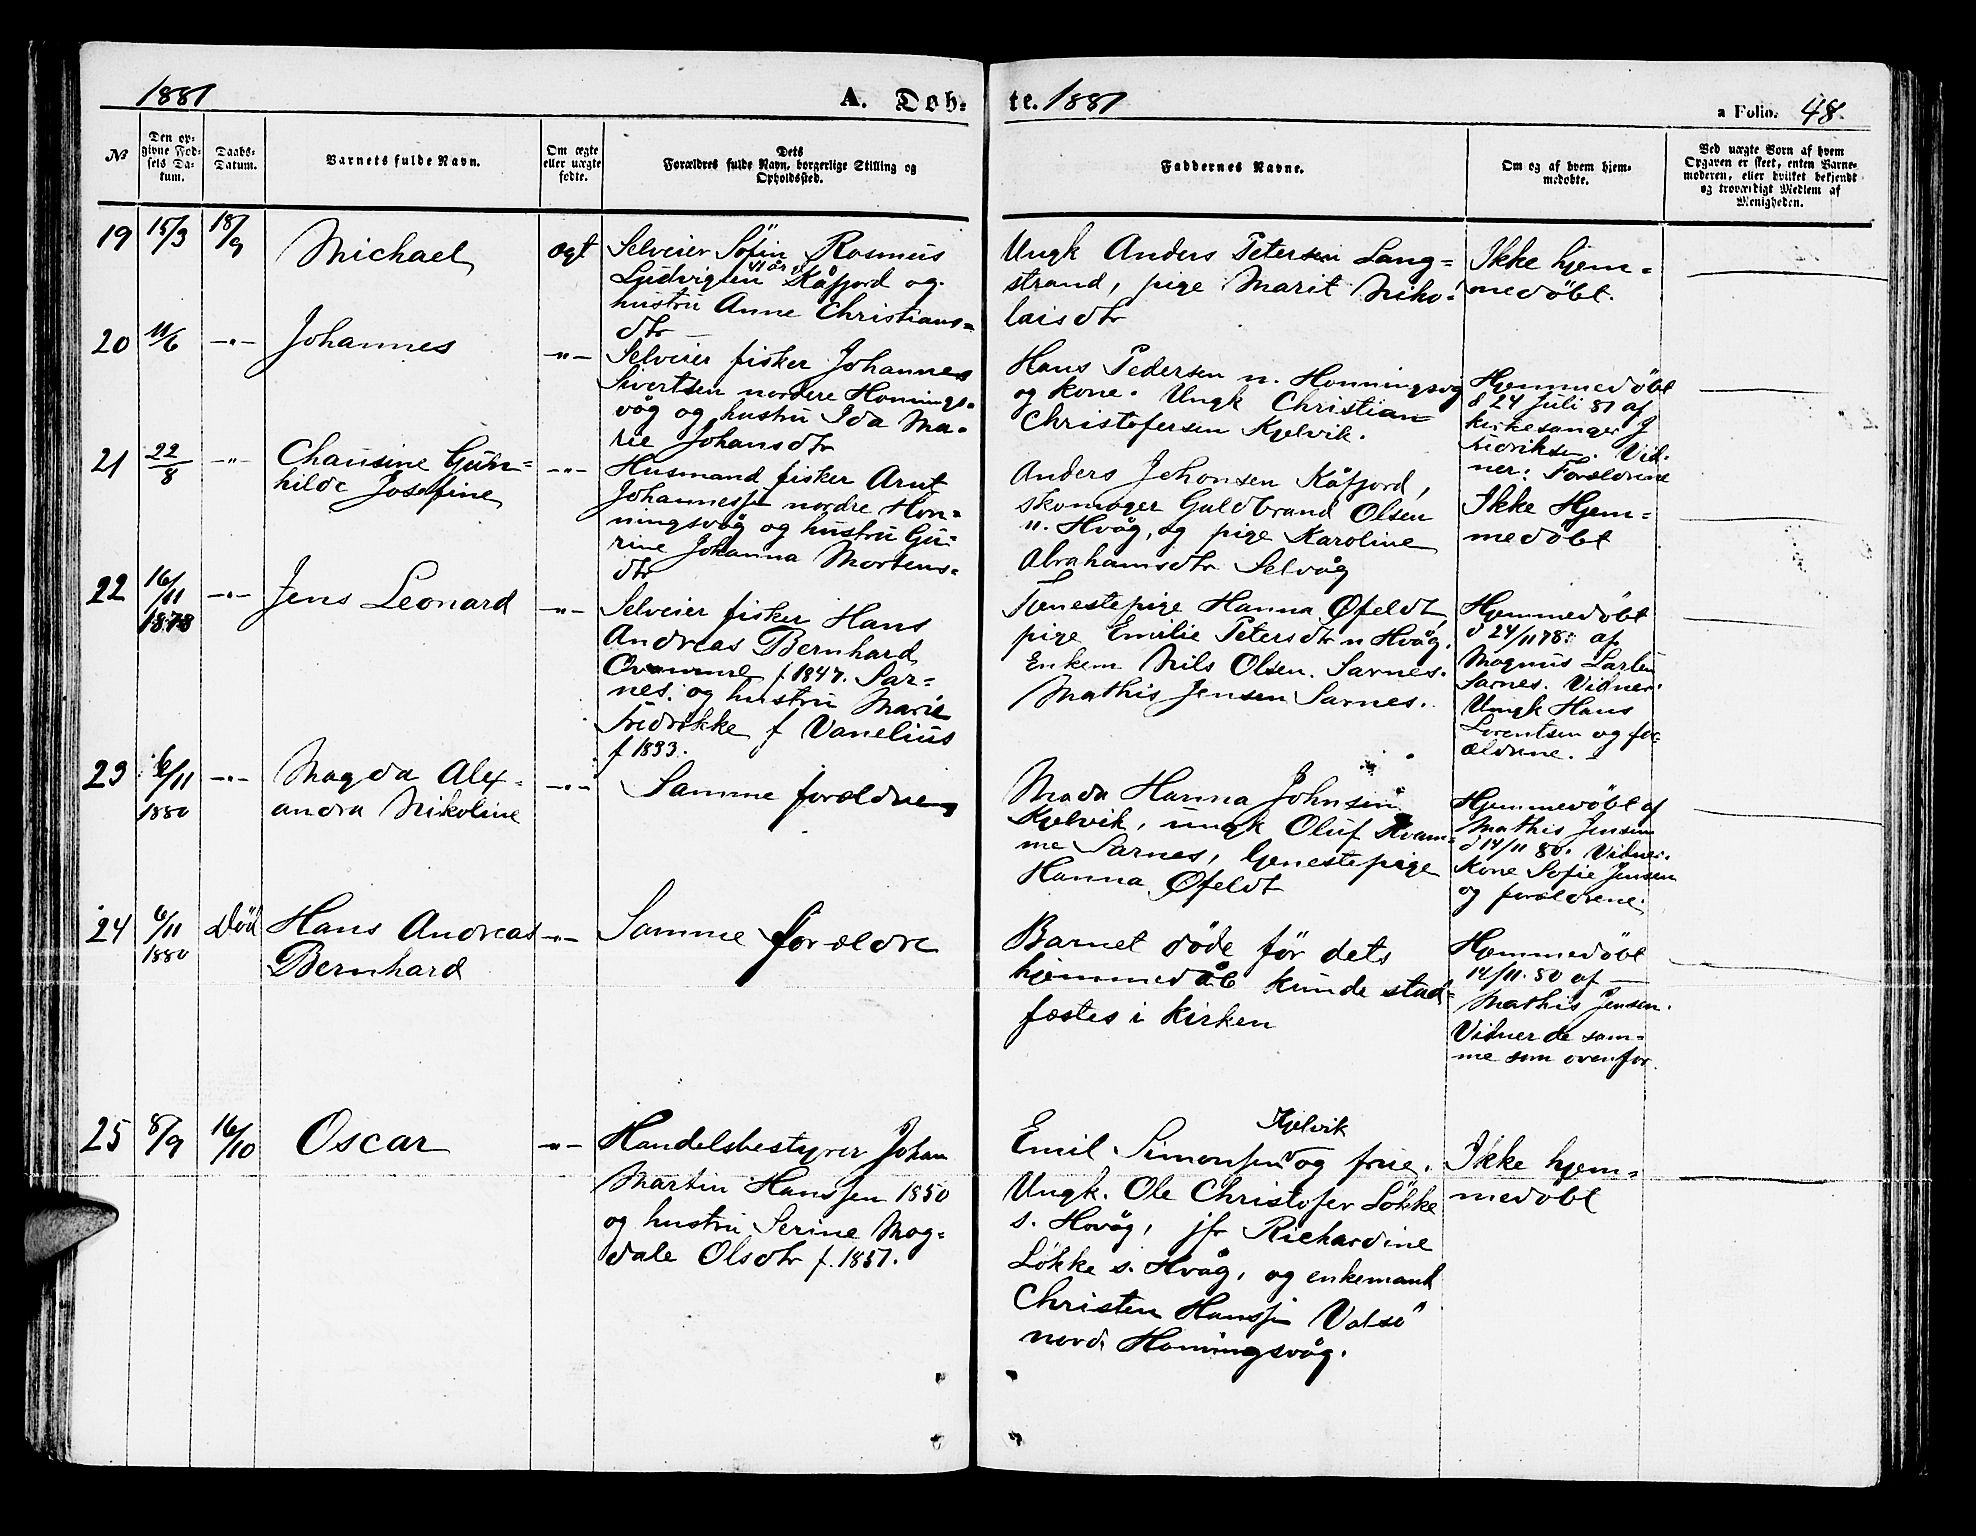 1881
A. Døb-
te. 1881
a Folio. 48.
№
Den op-
givne Fød-
sels Da-
tum.
Daabs-
Datum.
Barnets fulde Navn.
Om ægte
eller uægte
fødte.
Dets
Forældres fulde Navn, borgerlige Stilling og
Opholdssted.
Faddernes Navne.
Om og af hvem hjem-
medøbte.
Ved uægte Børn af hvem
Opgaven er skeet, enten Barne-
moderen, eller hvilket bekjendt
og troværdigt Medlem af
Menigheden.
19
15/3
18/9
Michael
ægt
Selveier Søfin Rasmus
Ludvigsen Kåfjord og
hustru Anne Christians-
dtr
Ungk Anders Petersen Lang-
strand, pige Marit Niko-
laisdtr
Ikke hjem-
medöbt.
20
11/6
-"-
Johannes
-"-
Selveier fisker Johannes
Sivertsen nordre Honnings-
våg og hustru Ida Ma-
rie Johansdtr
Hans Pedersen n. Honningsvåg
og kone. Ungk Christian
Christofersen Kjelvik.
Hjemmedöbt
d 24 Juli 81 af
kirkesanger J
Fredriksen. Vid-
ner: Forældrene
21
22/8
-"-
Chausine Gun-
hilde Josefine
-"-
Husmand fisker Arnt
Johannessen nordre Hon-
ningsvåg og hustru Gu-
rine Johanna Mortens-
dtr
Anders Johonsen Kåfjord,
skomager Guldbrand Olsen
n. Hvåg, og pige Karoline
Abrahamsdtr Selvåg
Ikke Hjem-
medöbt
22
16/11
1878
-"-
Jens Leonard
-"-
Selveier fisker Hans
Andreas Bernhard
Qvamme f. 1847. Sar-
nes. og hustru Marie
Fredrikke f Vanelius
f 1833.
Tjenestepige Hanna Øfeldt,
pige Emilie Petersdtr n Hvåg.
Enkem Nils Olsen. Sarnes.
Mathis Jensen Sarnes.
Hjemmedöbt
d 24/11 78. af
Magnus Larsen
Sarnes. Vidner.
Ungk Hans
Lorentsen og for-
ældrene.
23
6/11
1880
-"-
Magda Alex-
andra Nikoline
-"-
Samme forældre
Mada Hanna Johnsen
Kjelvik, ungk Oluf Kvam-
me Sarnes, tjenestepige
Hanna Øfeldt
Hjemmedöbt af
Mathis Jensen
d 14/11 80. Vidner.
Kone Sofie Jensen
og forældrene.
24
6/11
1880
Död
Hans Andreas
Bernhard
-"-
Samme forældre
Barnet döde för dets
hjemmedåb kunde stad-
fæstes i kirken
Hjemmedöbt
14/11. 80 af
Mathis Jensen.
Vidner de sam-
me som ovenfor.
25
8/9
16/10
Oscar
-"-
Handelsbestyrer Johan
Martin Hanssen 1850
og hustru Serine Mag-
dale Olsdtr f. 1857.
Kjelvik
Emil Simonsen og frue.
Ungk. Ole Christofer Løkke
s. Hovåg, jfr Richardine
Løkke s. Hvåg, og enkemand
Christen Hanssen Valsö
nord. Honningsvåg.
Ikke hjem-
medöbt